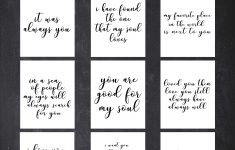 it was
always you
i have found
the one
that my soul
loves
my favorite place
in the world
is next to you
in a sea
of people
my eyes will
always search
for you
you are
good for
my soul
loved you then
love you still
always have
always will
i want you